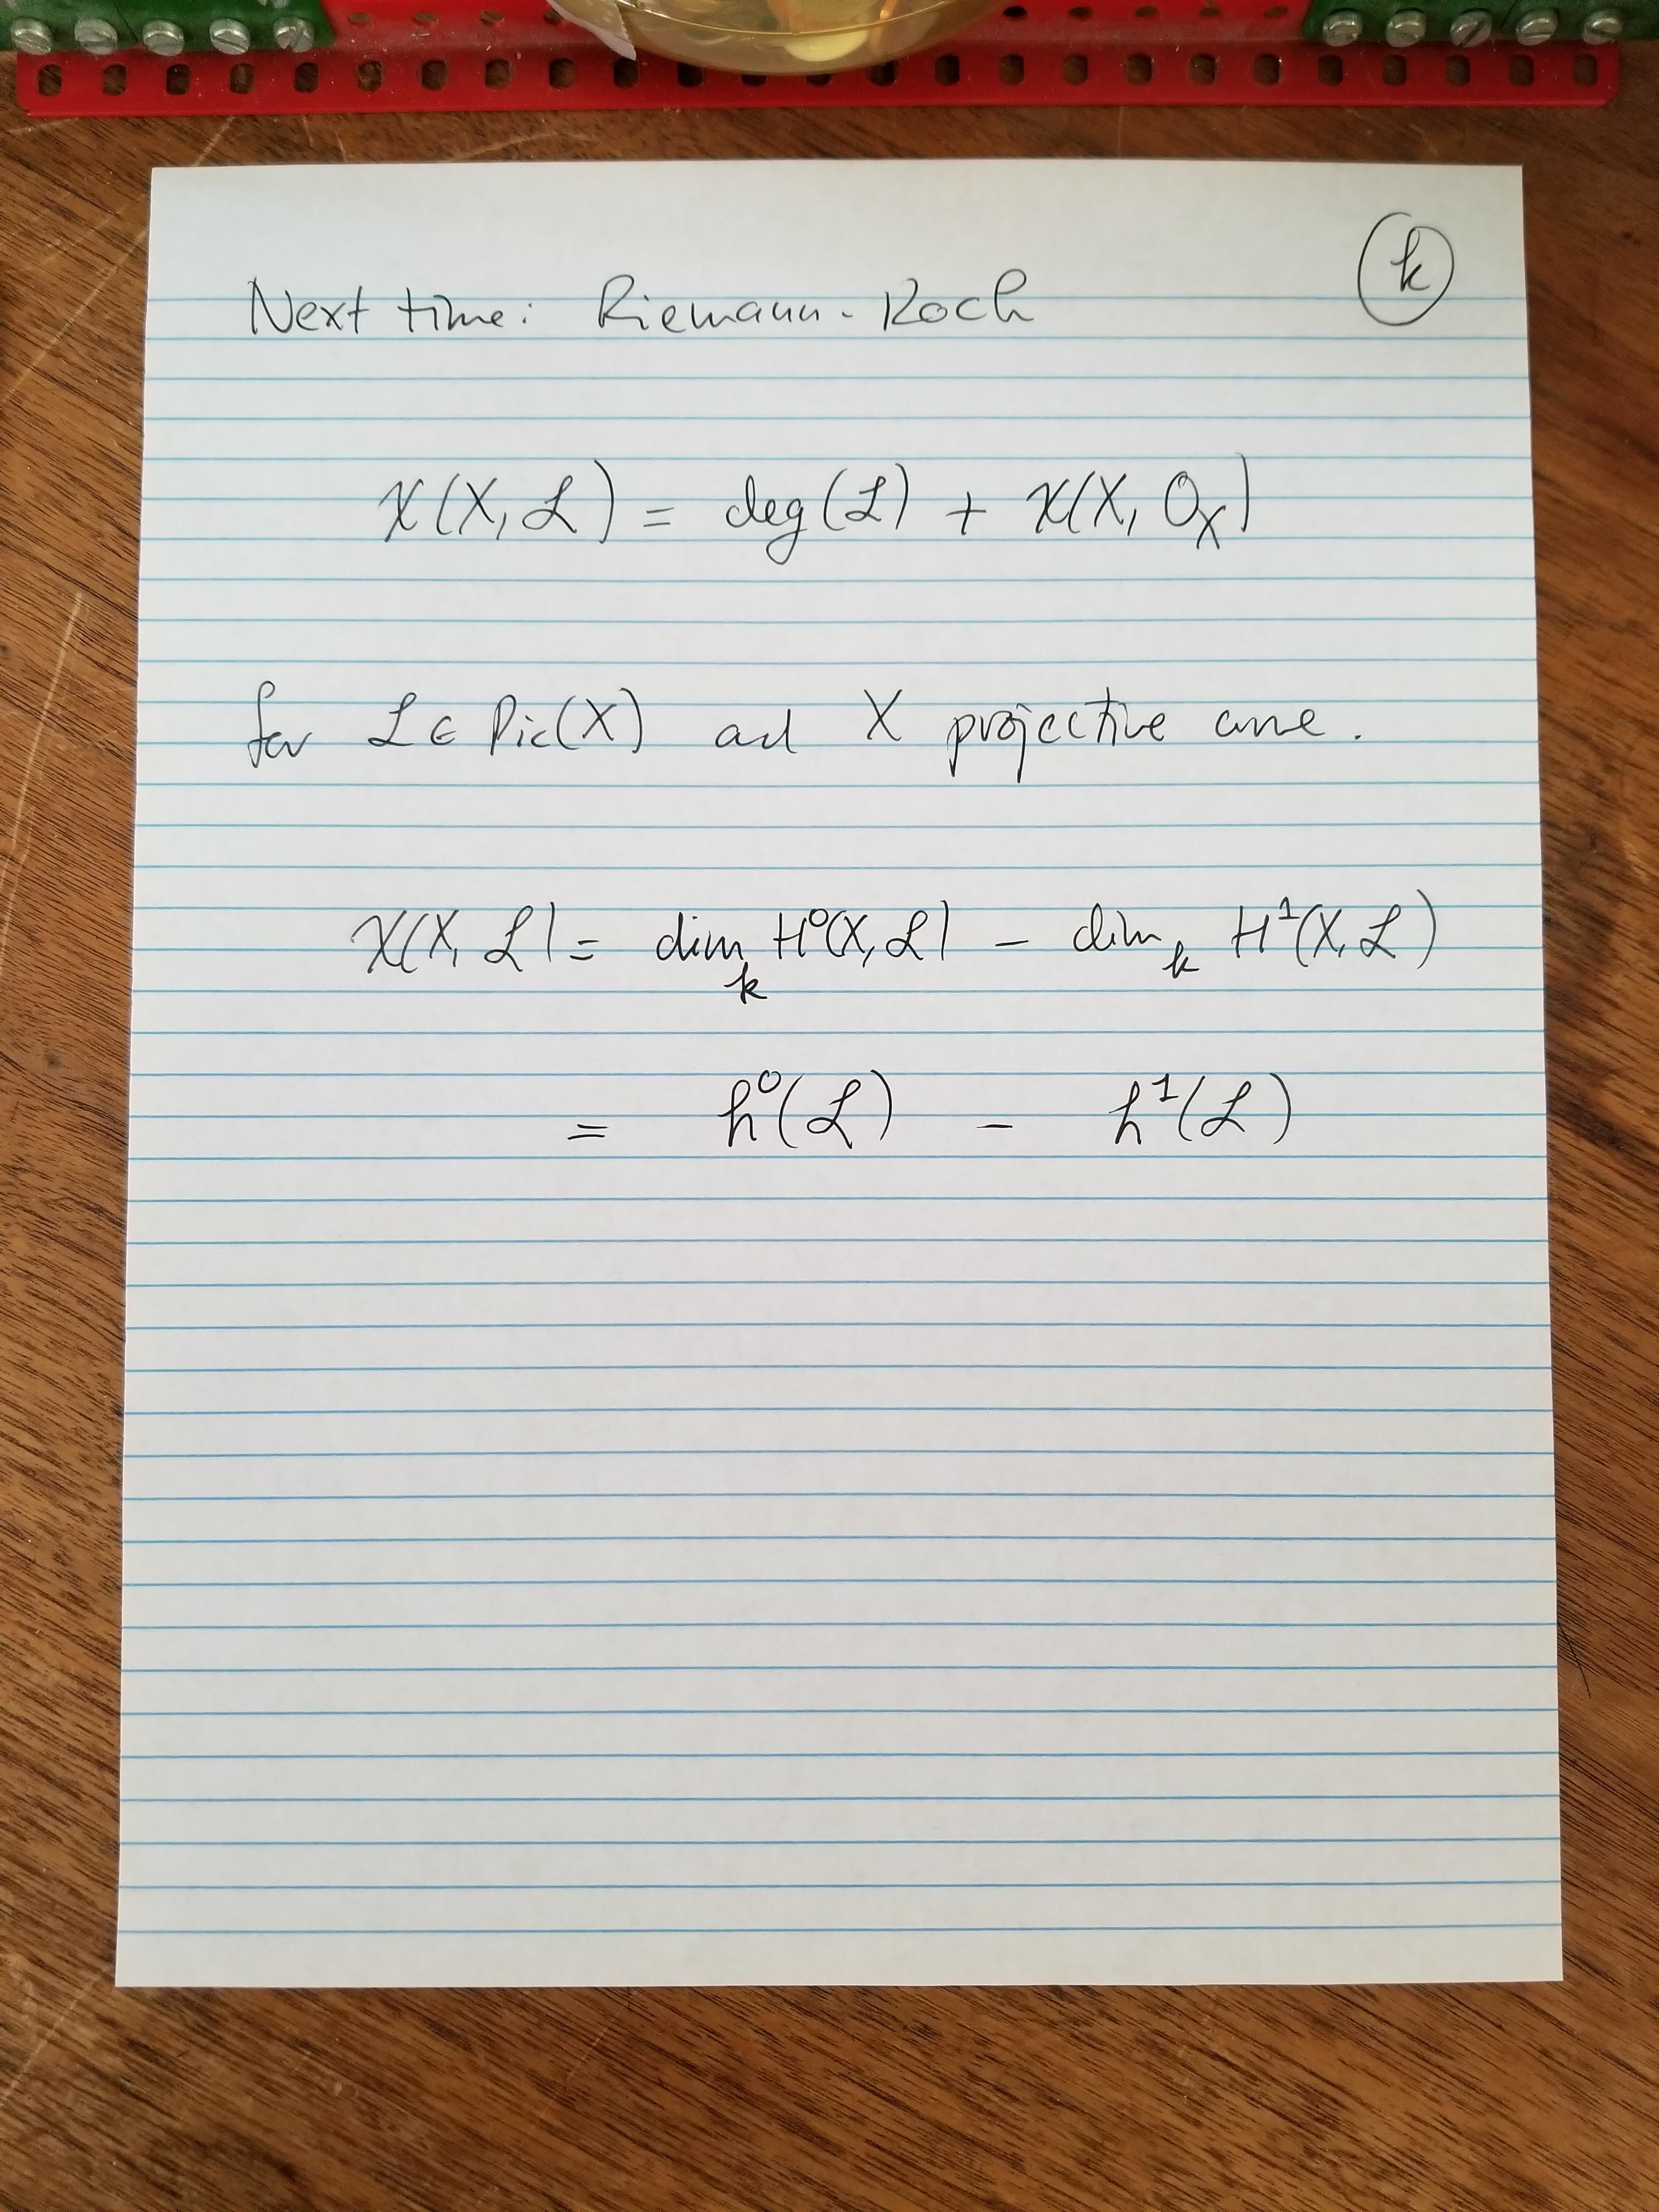 k
Next time: Riemann-Roch
χ(X, ℒ) = deg(ℒ) + χ(X, O_X)
for ℒ ∈ Pic(X) and X projective curve.
χ(X, ℒ) = dim_k H⁰(X, ℒ) - dim_k H¹(X, ℒ)
= h⁰(ℒ) - h¹(ℒ)